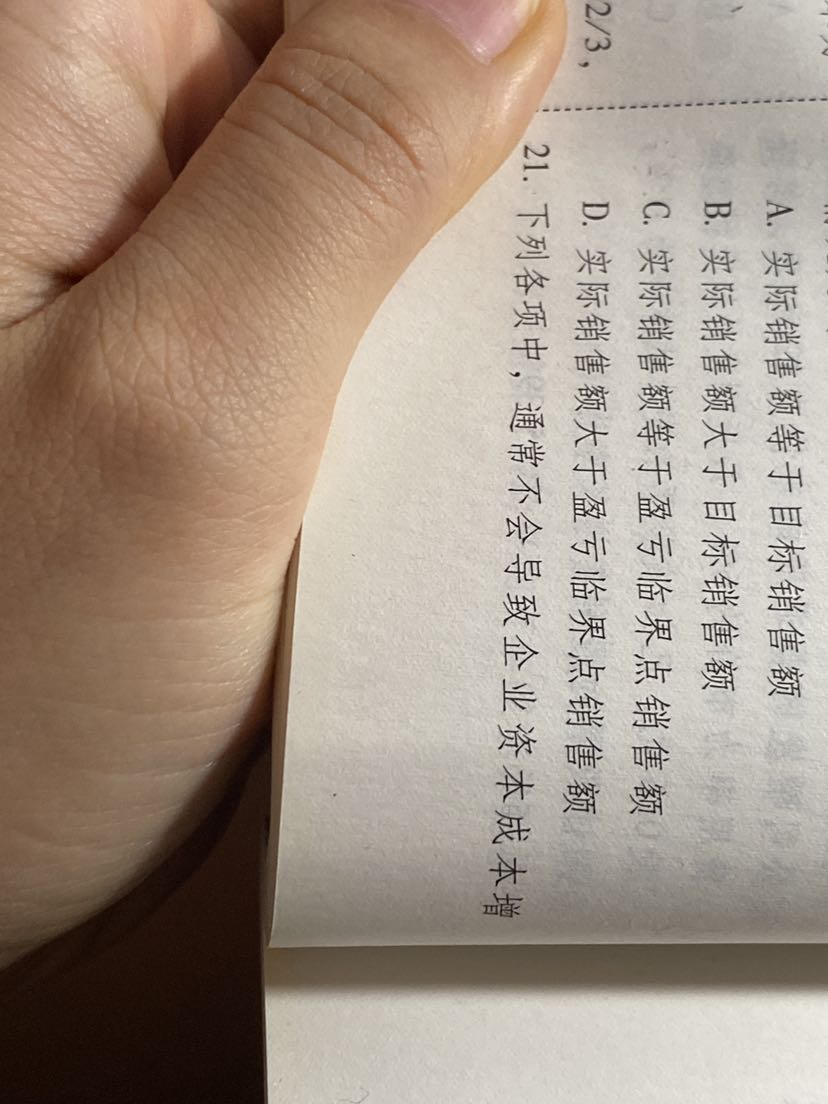 2/3，
A. 实际销售额等于目标销售额
B. 实际销售额大于目标销售额
C. 实际销售额等于盈亏临界点销售额
D. 实际销售额大于盈亏临界点销售额
21. 下列各项中，通常不会导致企业资本成本增